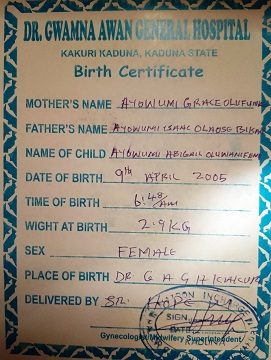 DR. GWAMNA AWAN GENERAL HOSPITAL
KAKURI KADUNA, KADUNA STATE
Birth Certificate
MOTHER'S NAME AYOWUMI GRACE OLUFUNK
FATHER'S NAME AYOWUMI ISAAC OLAOSEBIKAN
NAME OF CHILD AYOWUMI ABIGAIL
DATE OF BIRTH 9th APRIL 2005
TIME OF BIRTH 6:48am
WIGHT AT BIRTH 2.9KG
SEX FEMALE
PLACE OF BIRTH DR. G A G H KAKURI
DELIVERED BY SR.
SIGN
DATE
KADUNA
Gynecologist/Midwifery Superintendent